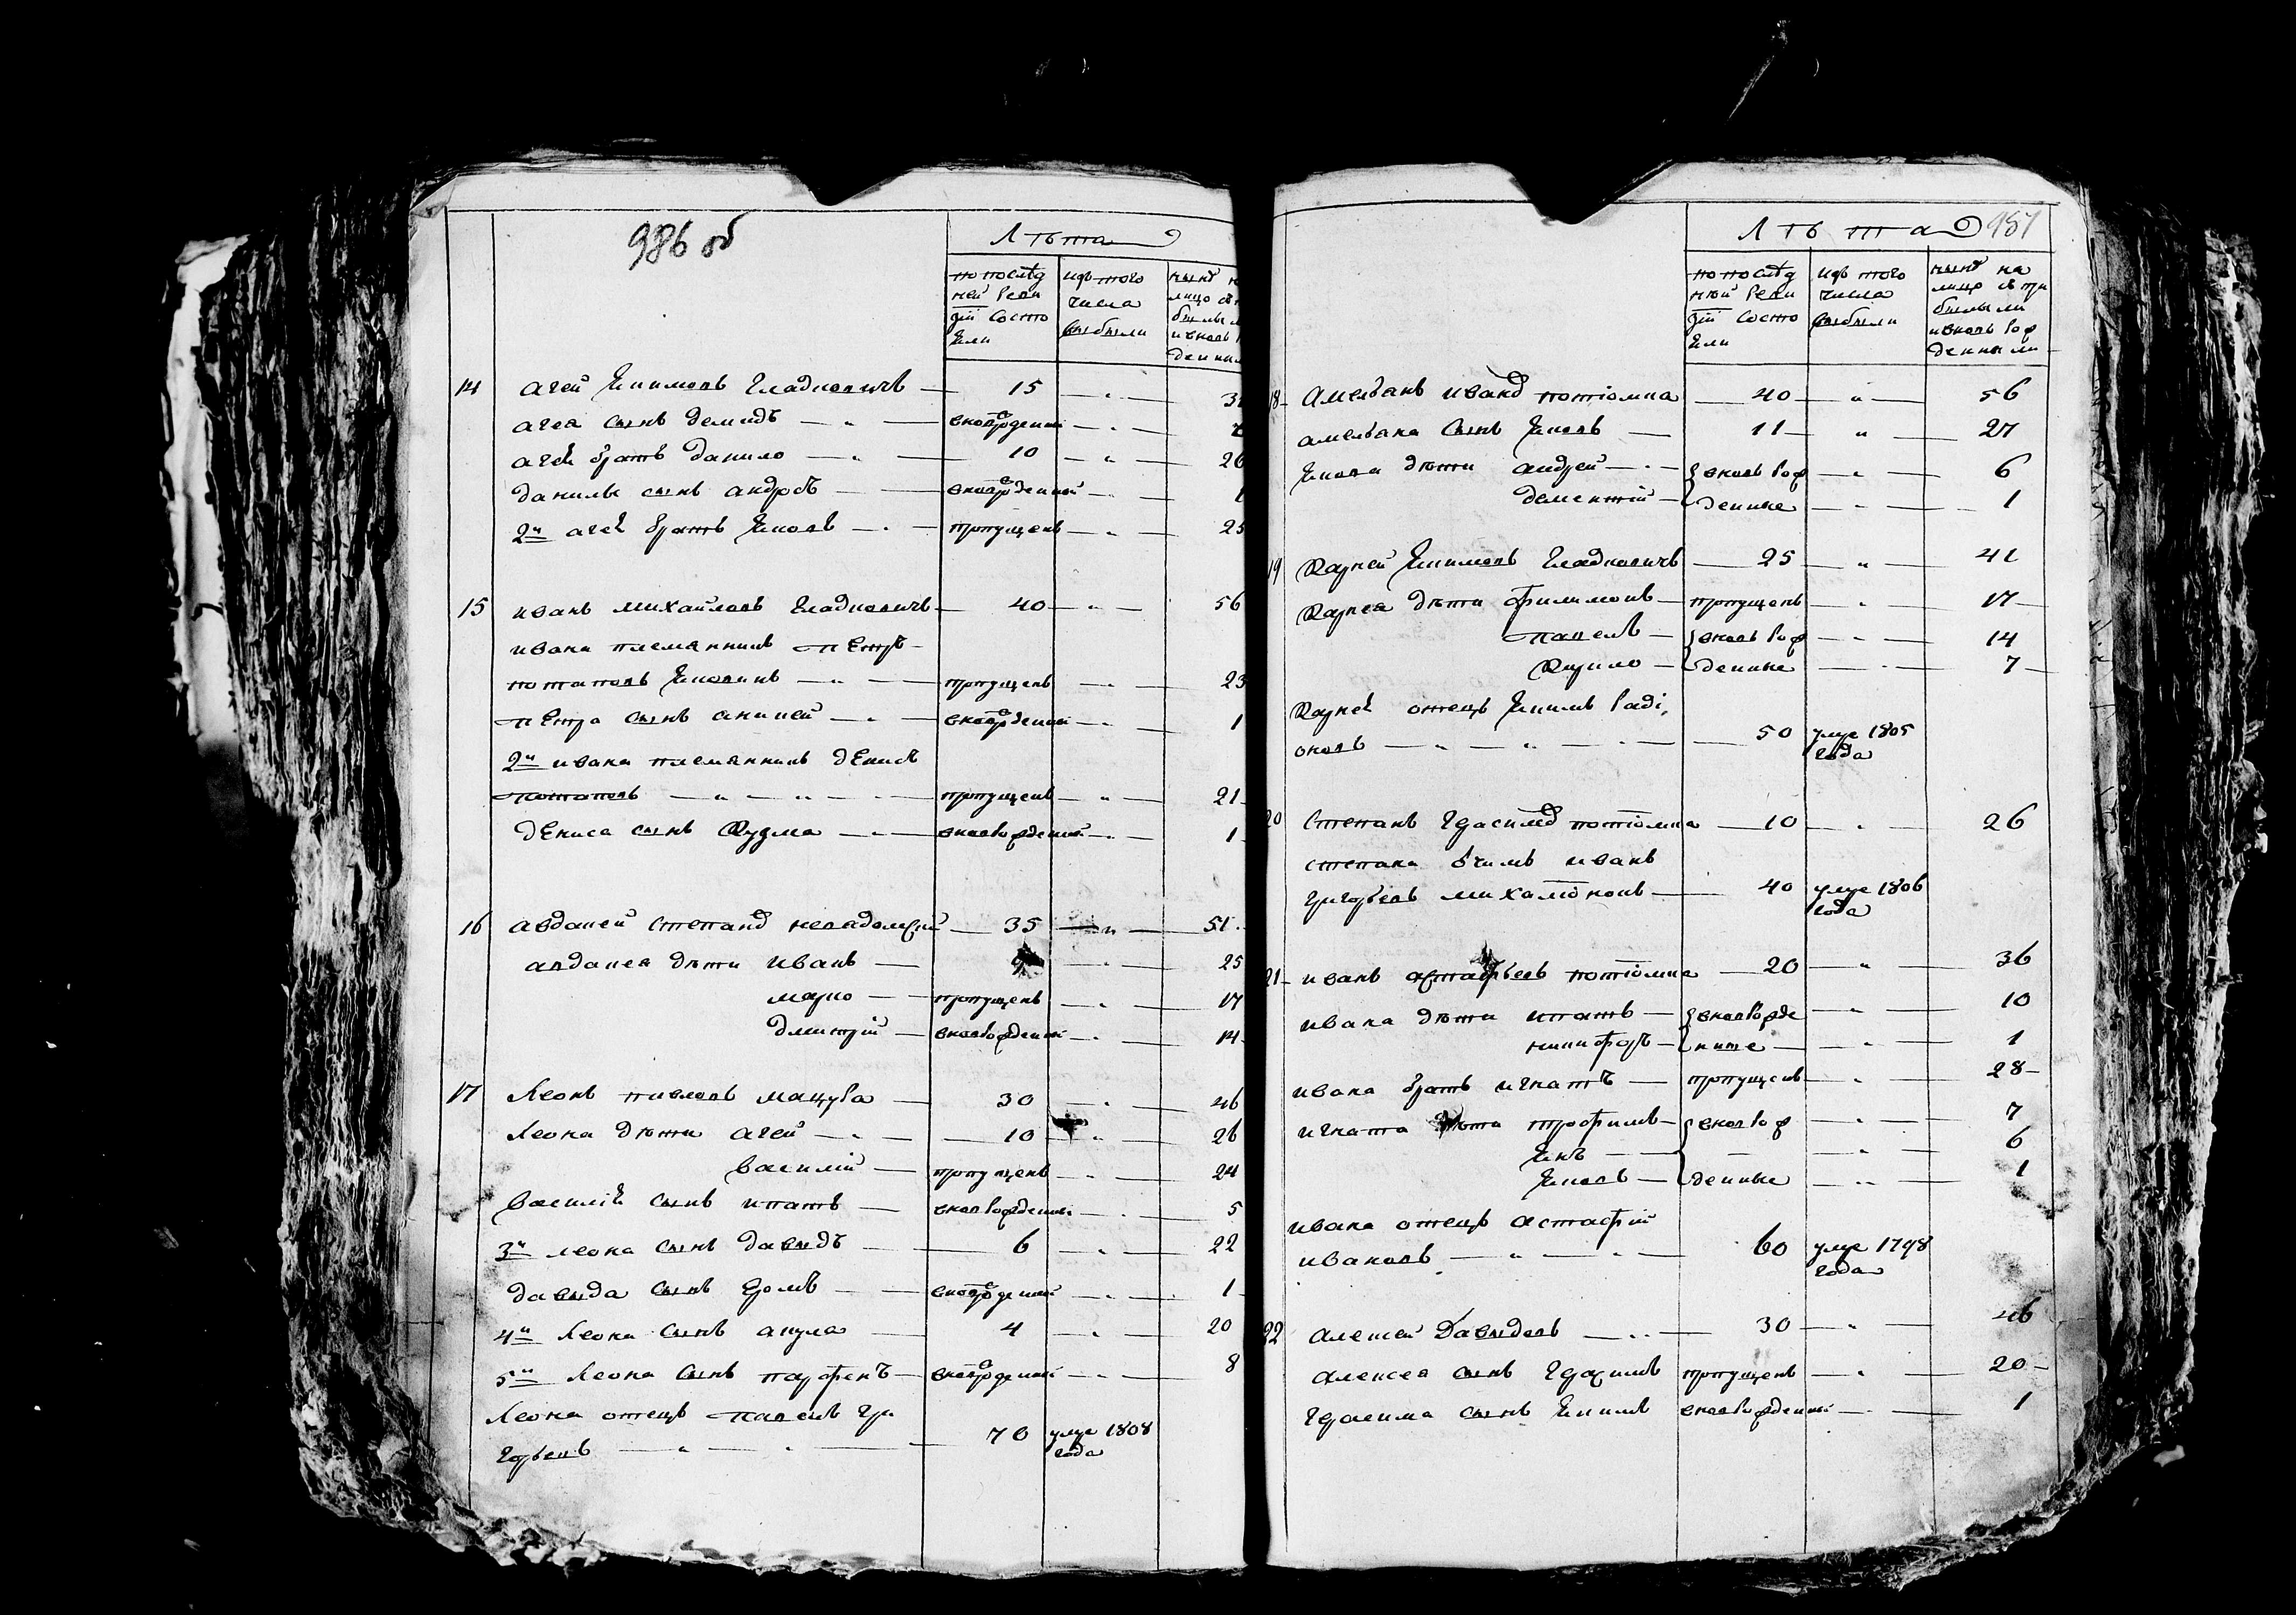 986 об
Лѣта
по послѣд
ней реви
зіи состо
яли
изъ того
числа
выбыли
нынѣ н
лицо съ п
былым
и вновь р
денны
14 Агей Якимовъ Гладковичъ — 15 — „ — 31
агея сынъ демидъ — „ — вноворожденный — „ —
агея братъ данило — „ — 10 — „ — 26
данилы сынъ андрей — вноворожденный — „ — 1
2й агея братъ Яковъ — „ — пропущенъ — „ — 25
15 иванъ михайловъ Гладковичъ — 40 — „ — 56
ивана племянникъ петръ
потаповъ Яковинъ — „ — пропущенъ — „ — 23
петра сынъ ананей — „ — вноворожденный — „ — 1
2й ивана племянникъ денисъ
потаповъ — „ — „ — „ — пропущенъ — „ — 21
дениса сынъ Кузма — „ — вноворожденный — „ — 1
16 авданей степановъ — 35 — „ — 51
авданея дѣти иванъ — — „ — 25
марко — пропущенъ — „ — 17
дмитрій — вноворожденный — „ — 14
17 Леонъ павловъ мацура — 30 — „ — 46
Леона дѣти агей — „ — 10 — „ — 26
василій — пропущенъ — „ — 24
василія сынъ ипатъ — вноворожденный — „ — 5
3й леона сынъ давыдъ — 6 — „ — 22
давыда сынъ ермъ — вноворожденный — „ — 1
4й Леона сынъ акула — 4 — „ — 20
5й Леона сынъ парфенъ — вноворожденный — „ — 8
Леона отецъ павелъ гри
горьевъ — „ — „ — 70 умре 1808
года
987
Лѣта
по послѣд
ней реви
зіи состо
яли
изъ того
числа
выбыли
нынѣ на
лицо съ при
былыми
и вновь рож
денными
18 Амельянъ ивановъ потіомка — 40 — „ — 56
амельяна сынъ Яковъ — 11 — „ — 27
Якова дѣти андрей — „ — вновь рож — „ — 6
дементій — денные — „ — 1
19 Карней Якимовъ Гладковичъ — 25 — „ — 41
Карнея дѣти филимонъ — пропущенъ — „ — 17
павелъ — вновь рож — „ — 14
Кирило — денные — „ — 7
Карнея отецъ Якимъ Раді,
оновъ — „ — „ — „ — 50 умре 1805
года
20 Степанъ Герасимовъ потіомка — 10 — „ — 26
степана отчимъ иванъ
Григорьевъ — 40 умре 1806
года
21 иванъ астафьевъ потіомка — 20 — „ — 36
ивана дѣти ипатъ — вноворожде — „ — 10
никифоръ — нные — „ — 1
ивана братъ игнатъ — пропущенъ — „ — 28
игната дѣти трофимъ — вновь рож — „ — 7
Янъ — — „ — 6
Яковъ — денные — „ — 1
ивана отецъ астафій
ивановъ — „ — „ — 60 умре 1798
года
22 алексей Давыдовъ — „ — 30 — „ — 46
алексея сынъ Герасимъ пропущенъ — „ — 20
Герасима сынъ Якимъ вноворожденный — „ — 1